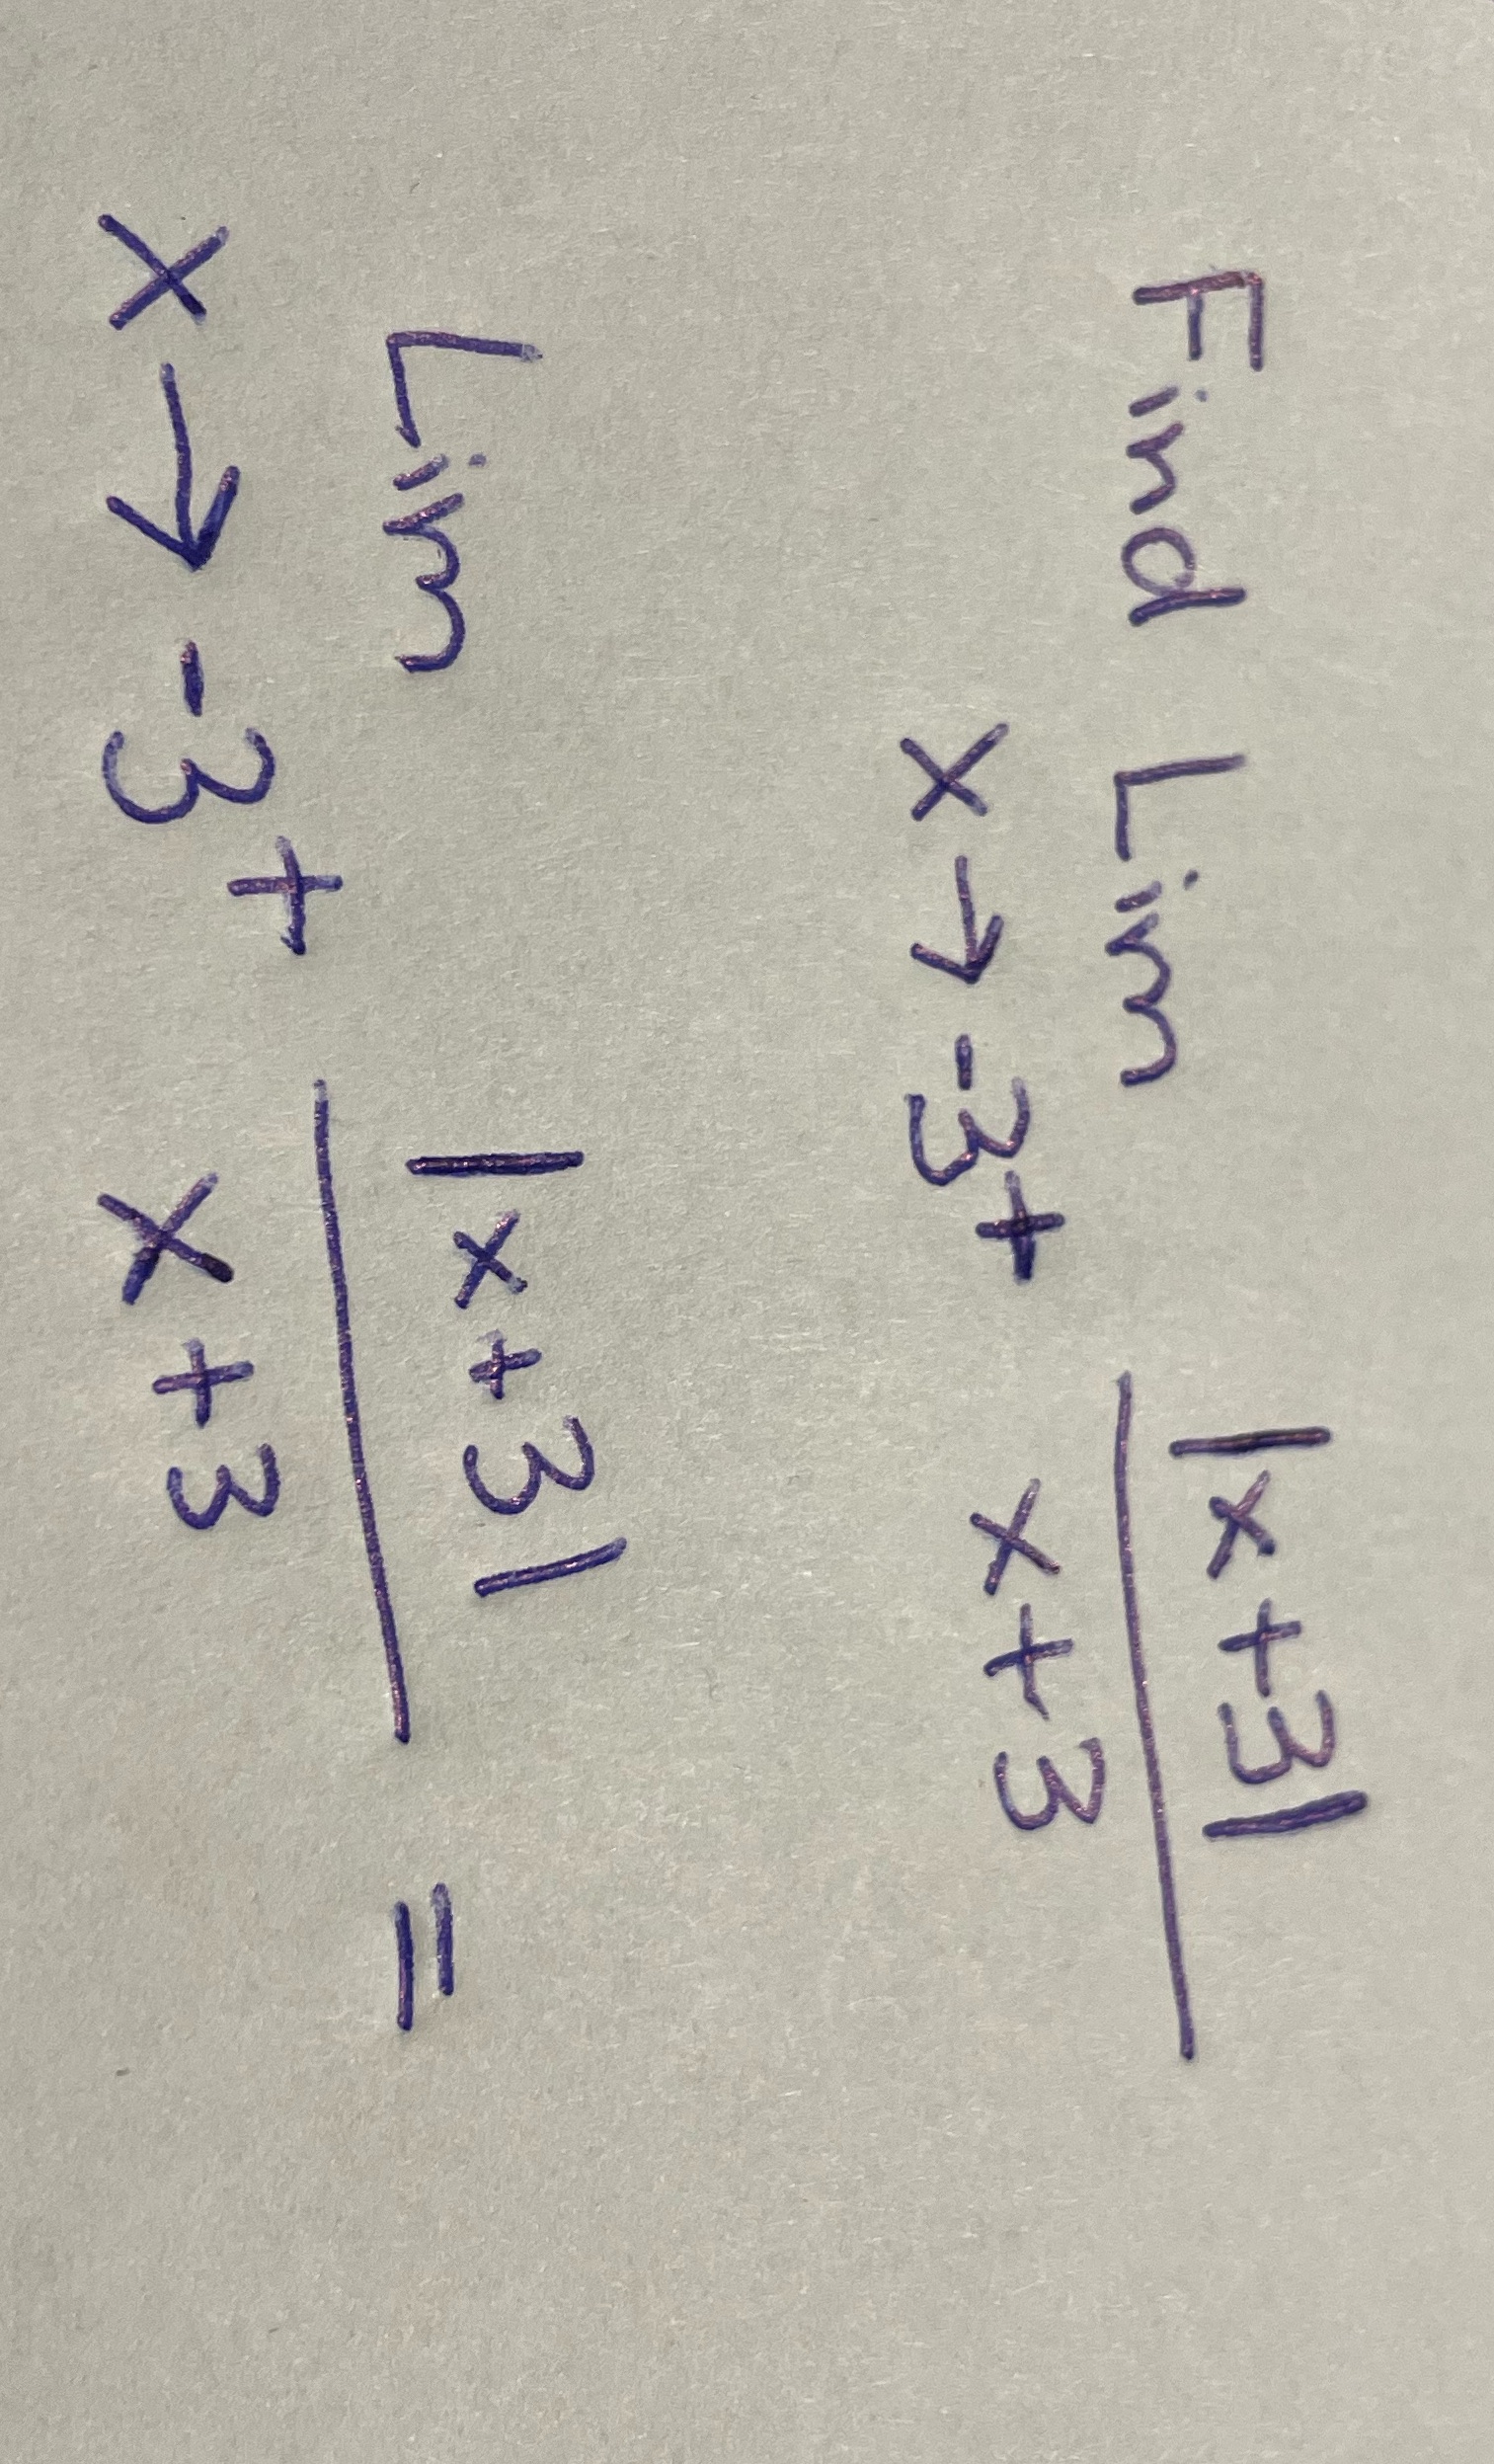 Find Lim |x+3|
x→-3+ x+3
Lim |x+3| =
x→-3+ x+3